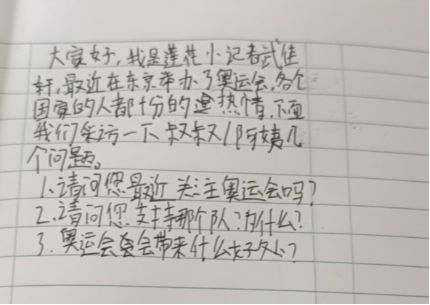 大家好,我是莲花小记者武佳
轩,最近在东京举办了奥运会,各个
国家的人都十分的热情,下面
我们采访一下叔叔/阿姨几
个问题。
1.请问您最近关注奥运会吗?
2.请问您支持哪个队?为什么?
3.奥运会会带来什么好处?